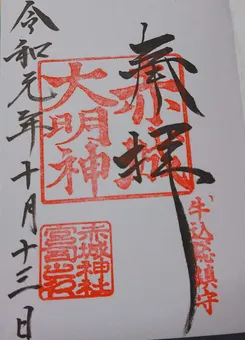 牛込総鎮守
奉拝
赤城
大明神
赤城神社
宮司之印
令和元年十月十三日